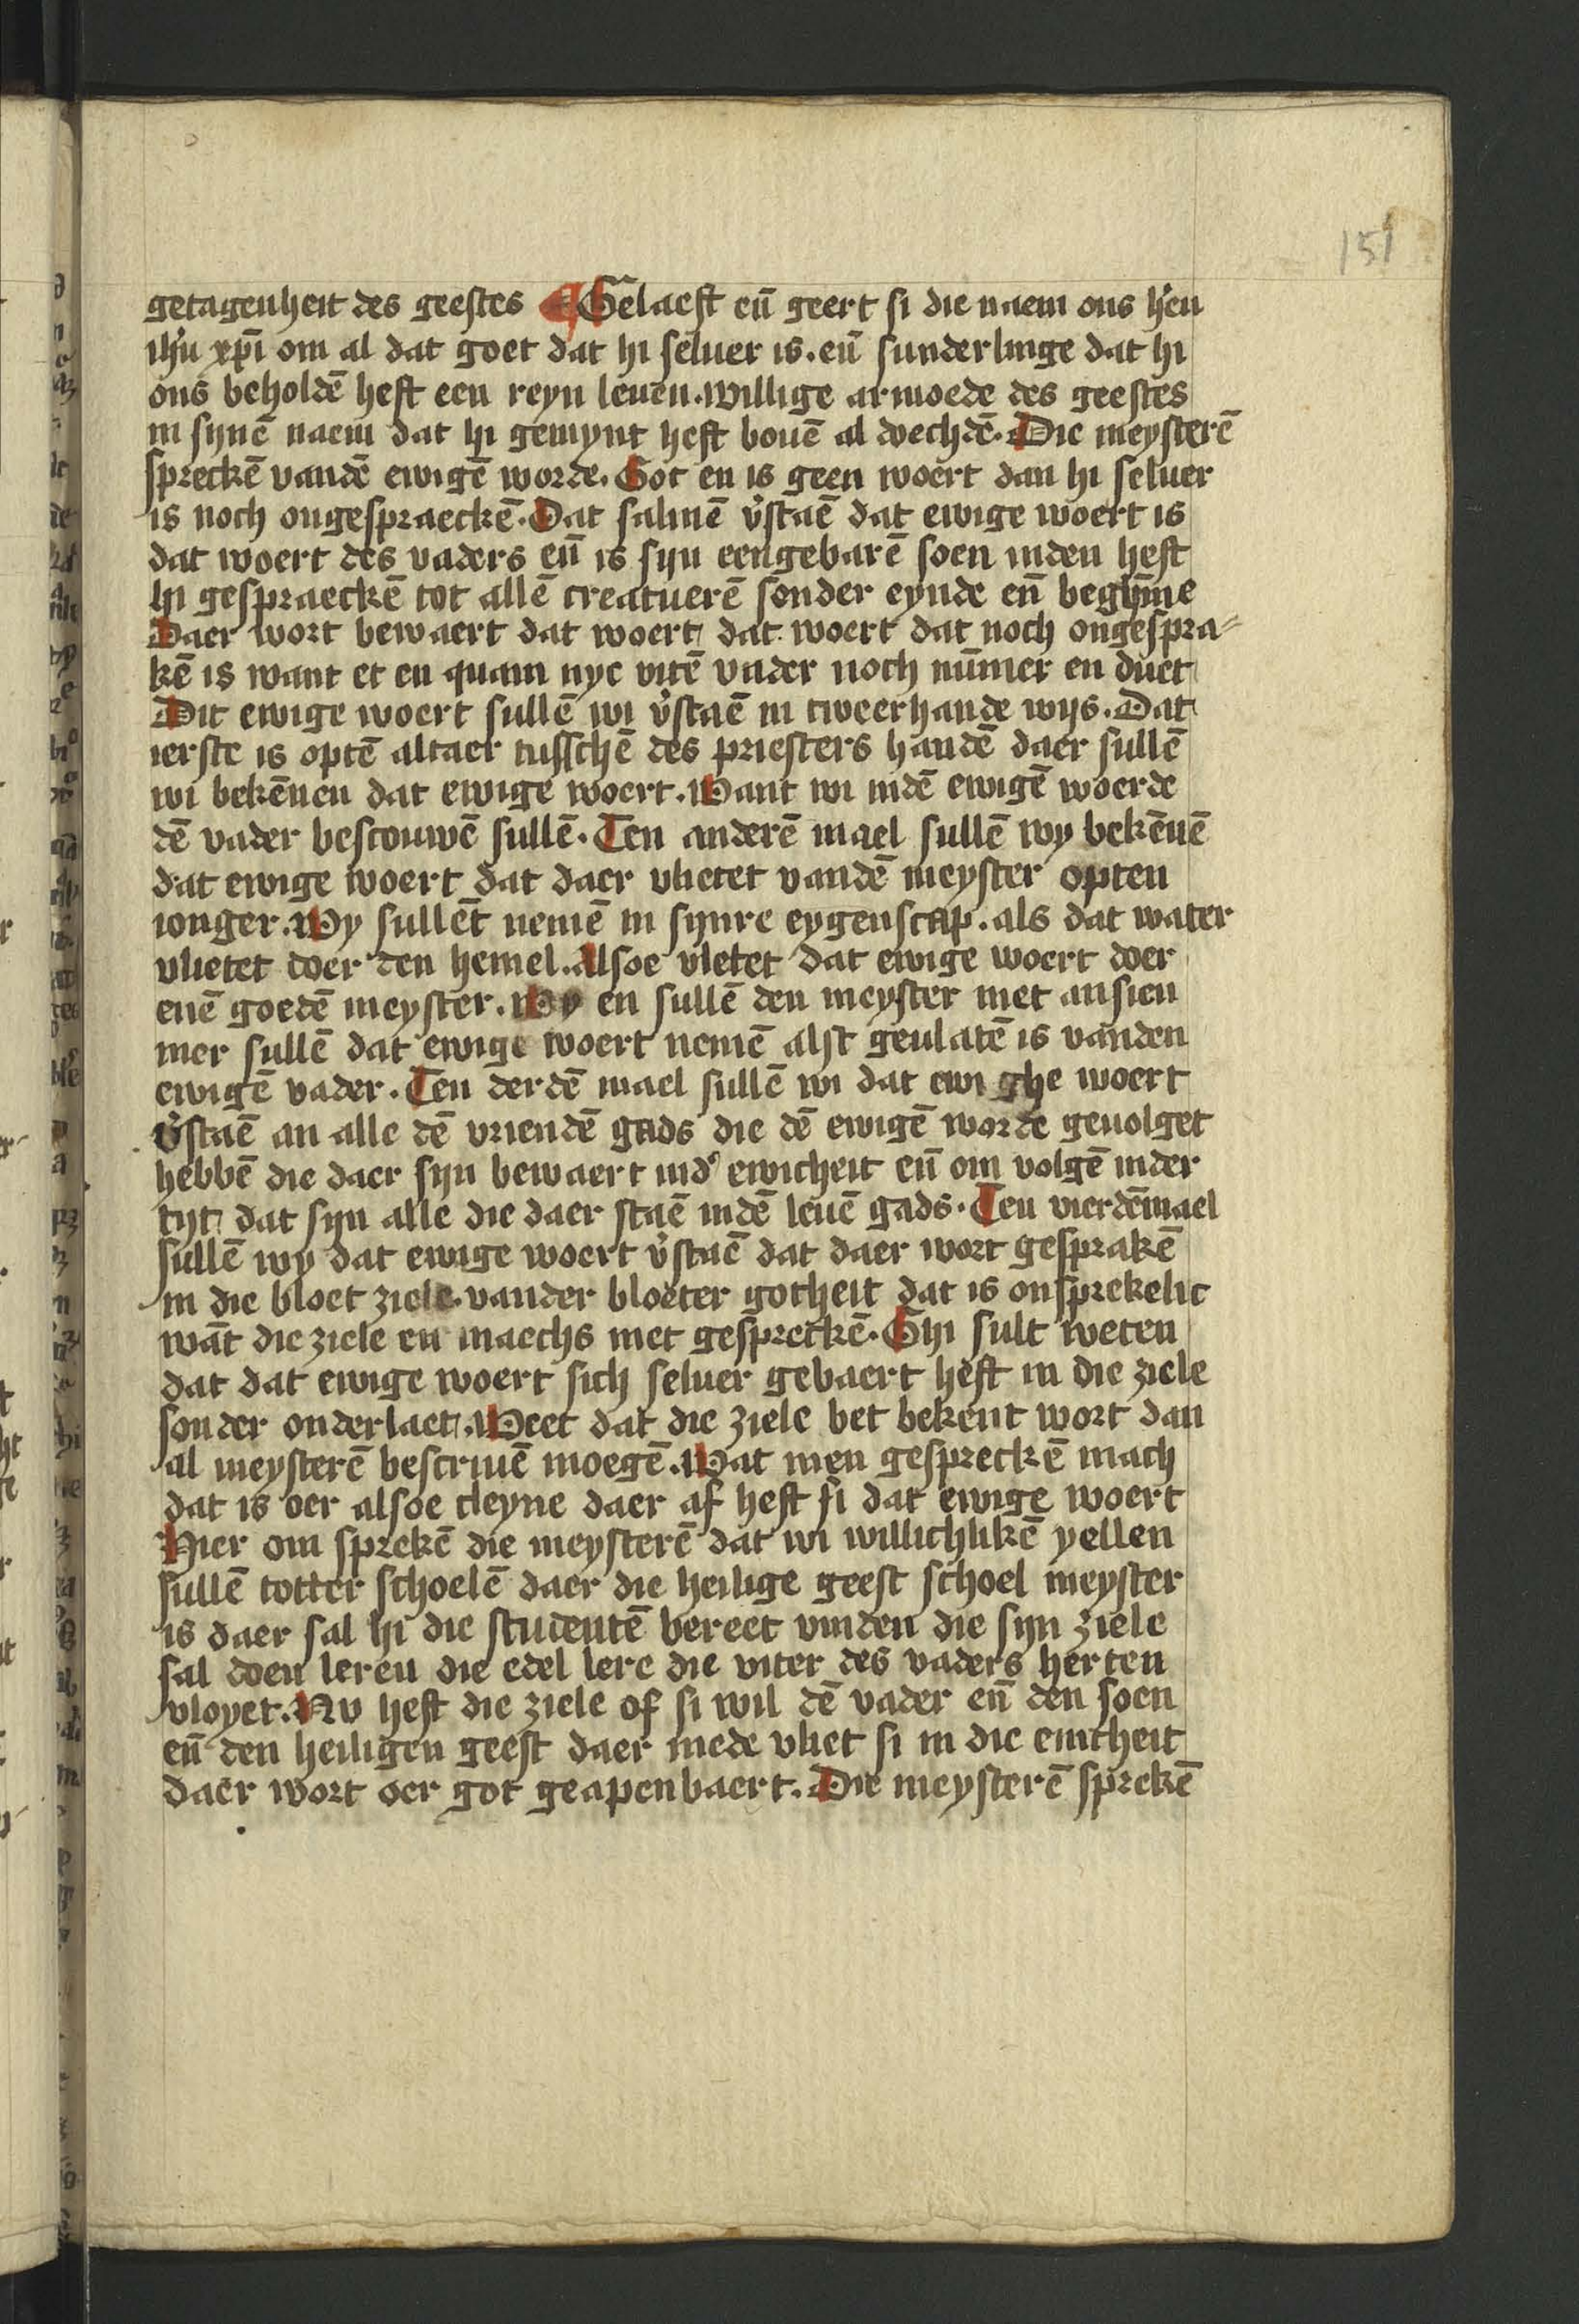 151
getagenheit des geestes ¶ Gelaeft eñ geert si die naem ons h̄en
ih̄u xp̄i om al dat goet dat hi seluer is. eñ sunderlinge dat hi
ons beholdē heft een reyn leuen. willige armoede des geestes
in synē naem dat hi gemynt heft bouē al doechdē. Die meysterē
spreckē vandē ewigē worde. Got en is geen woert dan hi seluer
is noch ongespraeckē. Dat salmē v̓staē dat ewige woert is
dat woert des vaders eñ is syn eengebarē soen inden heft
hi gespraeckē tot allē creatuerē sonder eynde eñ begyn̄ne
Daer wort bewaert dat woert dat woert dat noch ongespra⸗
kē is want et en quam nye vitē vader noch nūmer en duet
Dit ewige woert sullē wi v̓staē in tweerhande wijs. Dat
ierste is optē altaer tusschē des priesters handē daer sullē
wi bekēnen dat ewige woert. Want wi indē ewigē woerde
dē vader bescouwē sullē. Ten anderē mael sullē wy bekēnē
dat ewige woert dat daer vlietet vandē meyster opten
ionger. Wy sullēt nemē in synre eygenscap. als dat water
vlietet doer den hemel. Alsoe vletet dat ewige woert doer
enē goedē meyster. Wy en sullē den meyster niet ansien
mer sullē dat ewige woert nemē alst geulatē is vanden
ewigē vader. Ten derdē mael sullē wi dat ewighe woert
v̓staē an alle dē vriendē gads die dē ewigē worde geuolget
hebbē die daer syn bewaert ind̓ ewicheit eñ om volgē inder
tyt dat syn alle die daer staē indē leuē gads. Ten vierdēmael
sullē wy dat ewige woert v̓staē dat daer wort gesprakē
in die bloet ziele. vander bloeter gotheit dat is onsprekelic
wāt die ziele en maechs niet gespreckē. Ghi sult weten
dat dat ewige woert sich seluer gebaert heft in die ziele
sonder onderlaet. Weet dat die ziele bet bekent wort dan
al meysterē bescriuē moegē. Wat men gespreckē mach
dat is oer alsoe cleyne daer af heft si dat ewige woert
Hier om sprekē die meysterē dat wi willichlikē yellen
sullē totter schoelē daer die heilige geest schoel meyster
is daer sal hi die studentē bereet vinden die syn ziele
sal doen leren die edel lere die viter des vaders herten
vloyet. Nv heft die ziele of si wil dē vader eñ den soen
eñ den heiligen geest daer mede vliet si in die eintheit
daer wort oer got geapenbaert. Die meysterē sprekē